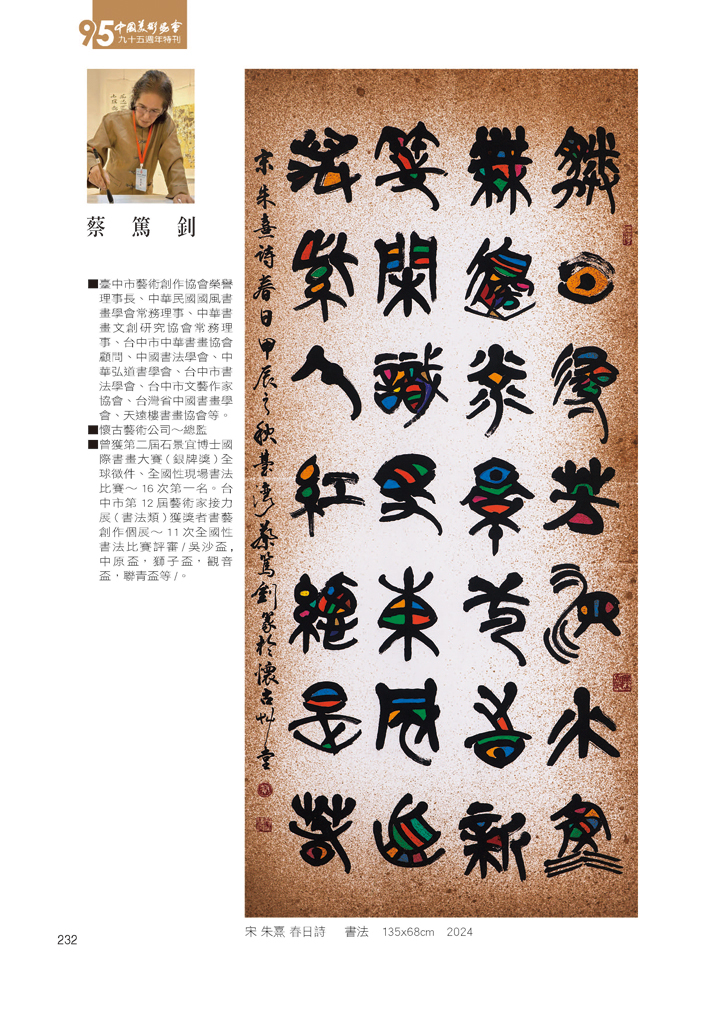 95 中國美術協會
九十五週年特刊
蔡 篤 釗
■臺中市藝術創作協會榮譽
理事長、中華民國國風書
畫學會常務理事、中華書
畫文創研究協會常務理
事、台中市中華書畫協會
顧問、中國書法學會、中
華弘道書學會、台中市書
法學會、台中市文藝作家
協會、台灣省中國書畫學
會、天遠樓書畫協會等。
■懷古藝術公司～總監
■曾獲第二屆石景宜博士國
際書畫大賽（銀牌獎）全
球徵件、全國性現場書法
比賽～16次第一名。台
中市第12屆藝術家接力
展（書法類）獲獎者書藝
創作個展～11次全國性
書法比賽評審/吳沙盃，
中原盃，獅子盃，觀音
盃，聯青盃等/。
勝日尋芳泗水濱
無邊光景一時新
等閒識得東風面
萬紫千紅總是春
宋朱熹詩春日甲辰之秋臺灣蔡篤釗篆於懷古艸堂
宋 朱熹 春日詩 書法 135x68cm 2024
232